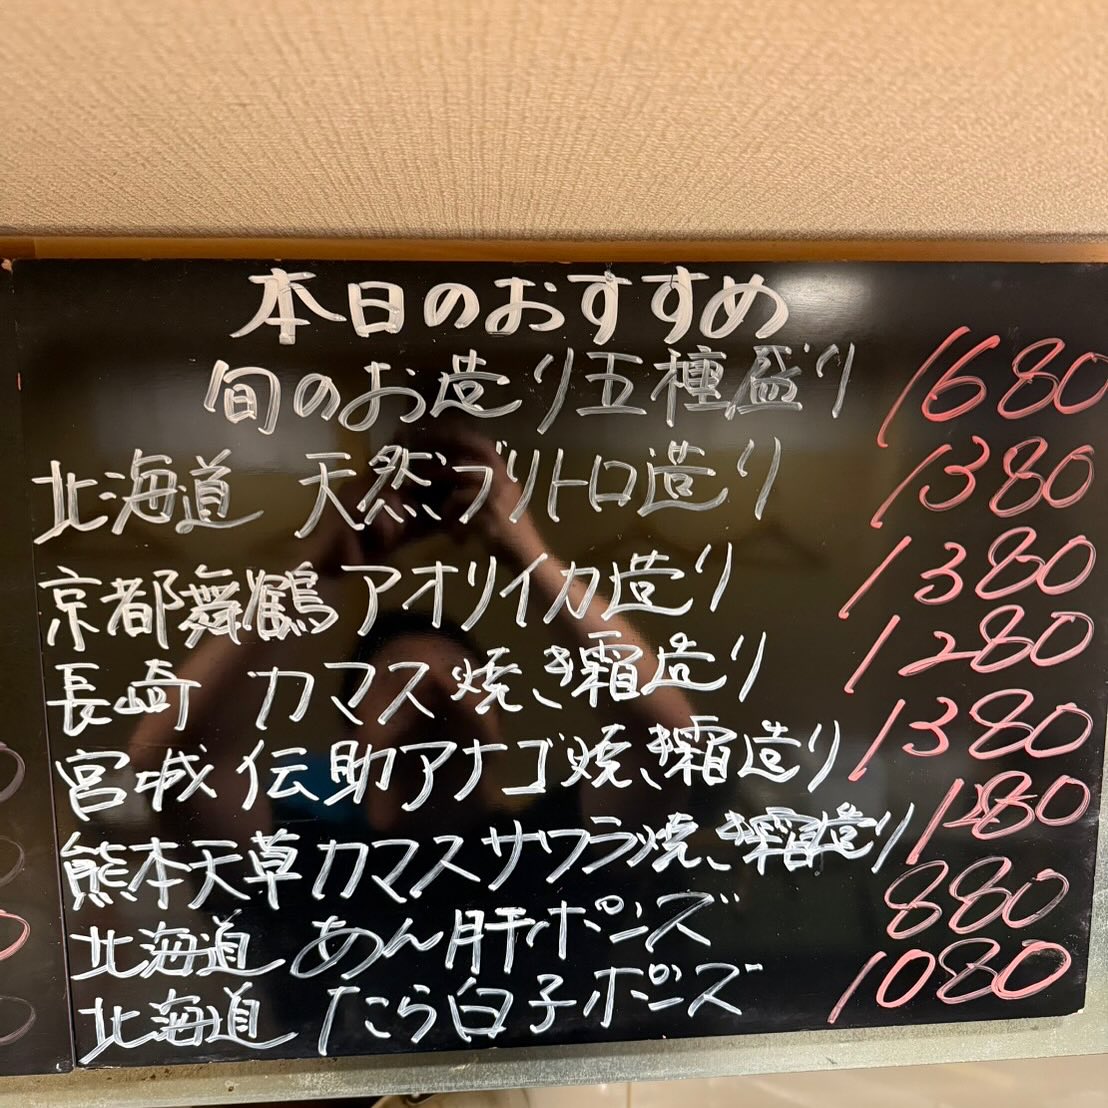 本日のおすすめ
旬のお造り五種盛り 1680
北海道 天然ブリトロ造り 1380
京都舞鶴アオリイカ造り 1380
長崎 カマス焼き霜造り 1280
宮城 伝助アナゴ焼き霜造り 1380
熊本天草カマスサワラ焼き霜造り 1280
北海道 あん肝ポンズ 880
北海道 たら白子ポンズ 1080